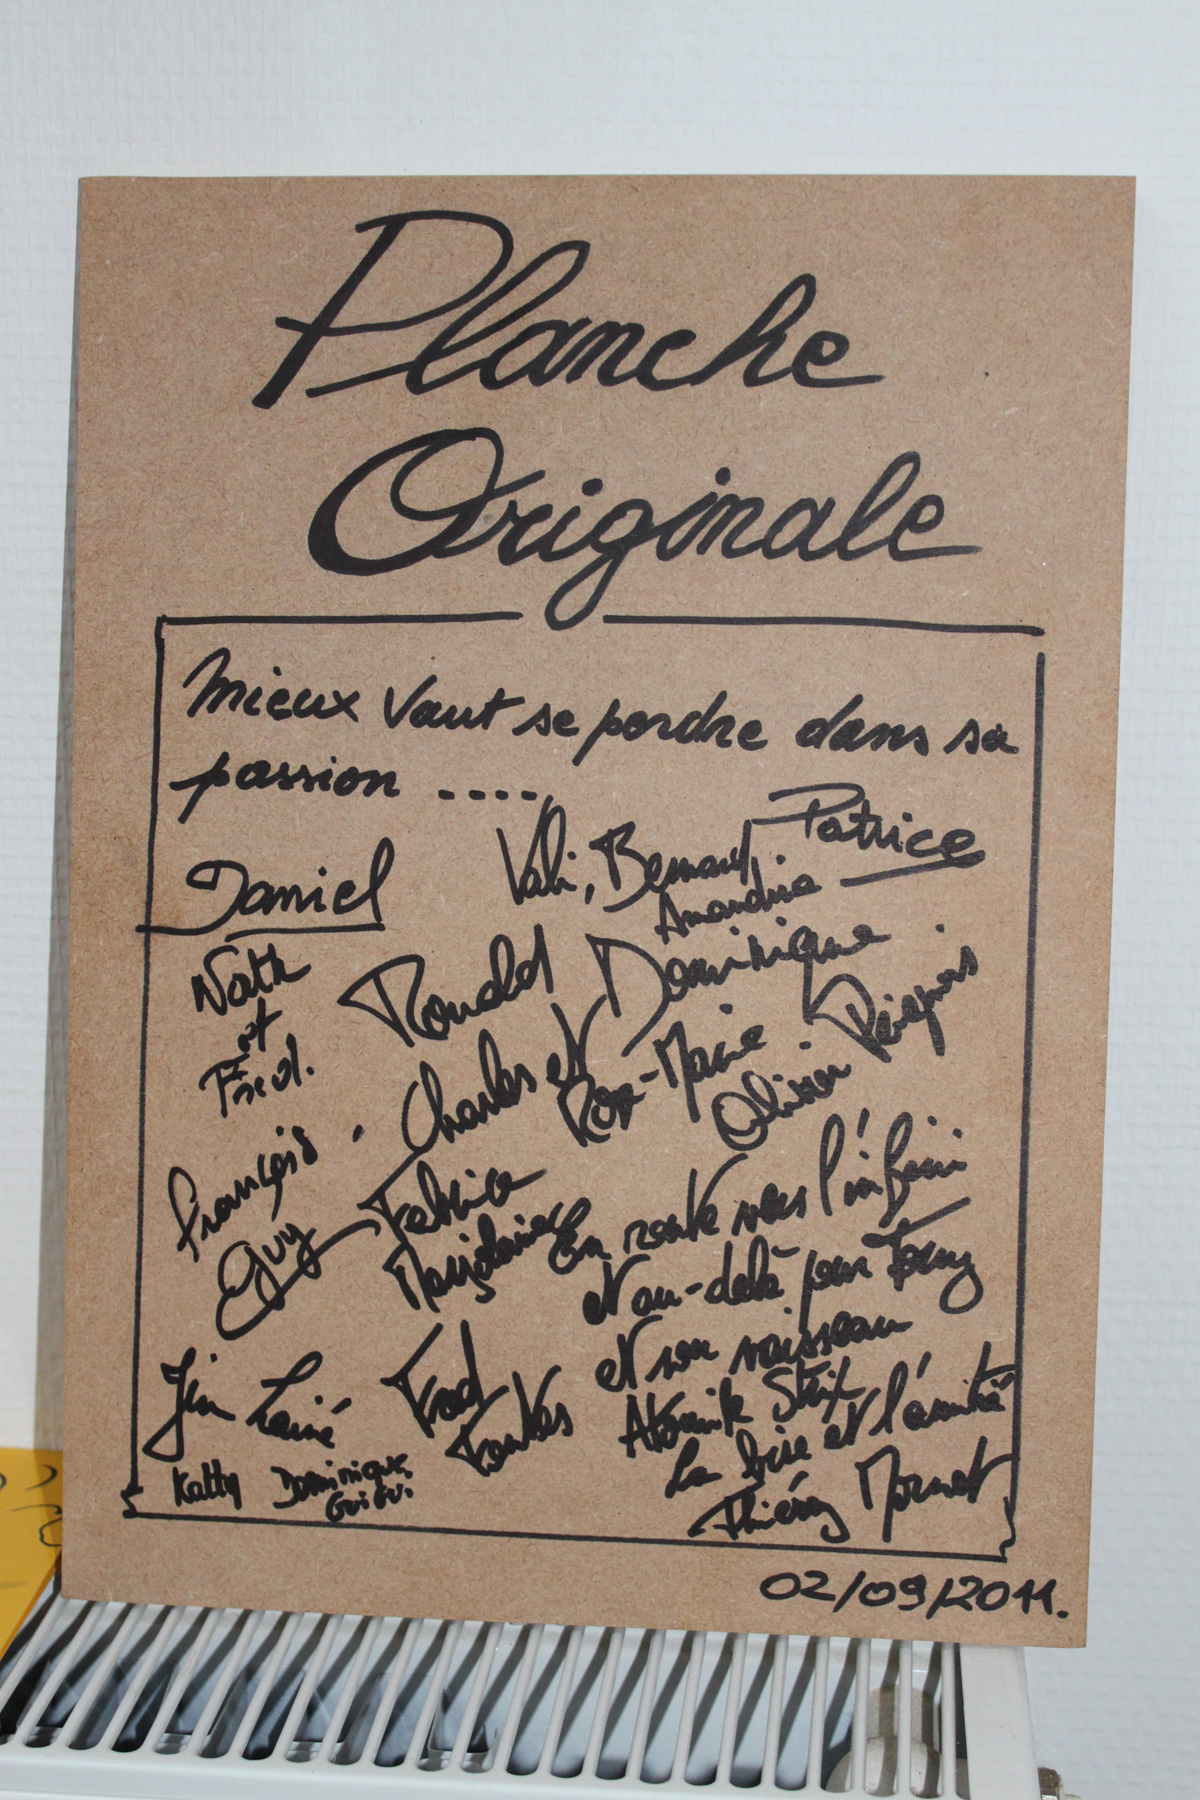 Planche
Originale
Mieux vaut se perdre dans sa
passion ....
Patrice
Daniel
Vali, Bernard,
Amandine
Nath
et
Fred.
Ronald
Dominique
Charles et
Rose-Marie
Olivier Peignois
François
Guy
Fabrice
Marjolaine
En route vers l'infini
et au-delà pour Fanny
et son vaisseau
Atomik Strix
La bise et l'amitié
Thiérry Mornet
Jim Lainé
Fred
Fontes
Kathy
Dominique
Guigui
02/09/2011.